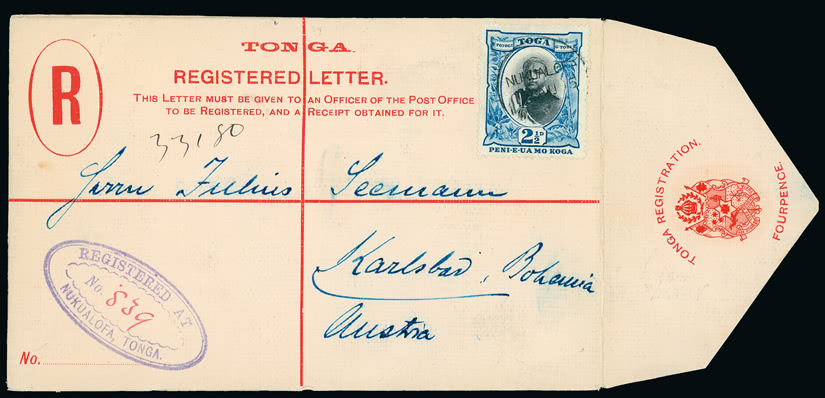 TONGA.
R
REGISTERED LETTER.
THIS LETTER MUST BE GIVEN TO AN OFFICER OF THE POST OFFICE
TO BE REGISTERED, AND A RECEIPT OBTAINED FOR IT.
33180
TOGA
NUKUALOFA
2½D
PENI-E-UA MO KOGA
Herrn Julius Seemann
Karlsbad, Bohemia
Austria
REGISTERED AT
No. 839
NUKUALOFA, TONGA.
No.
TONGA REGISTRATION.
FOURPENCE.